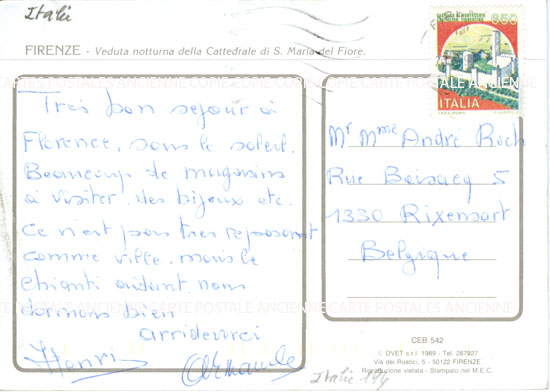 Italie
FIRENZE - Veduta notturna della Cattedrale di S. Maria del Fiore.
650
ITALIA
CARTE POSTALES ANCIENNE CARTE POSTALES ANCIENNE CARTE POSTALES ANCIENNE
Très bon sejour à
Florence, sous le soleil.
Beaucoup de magasins
à visiter, des bijoux etc.
Ce n'est pas très reposant
comme ville, mais le
chianti aidant, nous
dormons bien
arrideverci
Henri
Mr Mme André Roch
Rue Boisacq 5
1330 Rixensart
Belgique
CEB 542
© OVET s.r.l. 1989 - Tel. 287927
Via dei Rustici, 5 - 50122 FIRENZE
Riproduzione vietata - Stampato nel M.E.C.
Italie 194